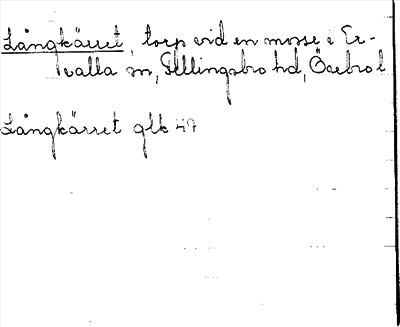 Långkärret, torp vid en mosse i Er-
valla sn, Fellingsbro hd, Örebro l
Långkärret glk 47